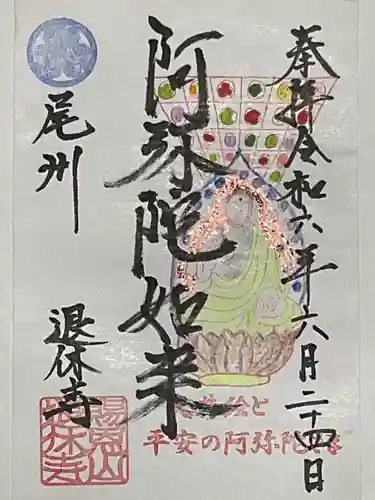 奉拝 令和六年六月二十四日
阿弥陀如来
尾州
退休寺
平安の阿弥陀